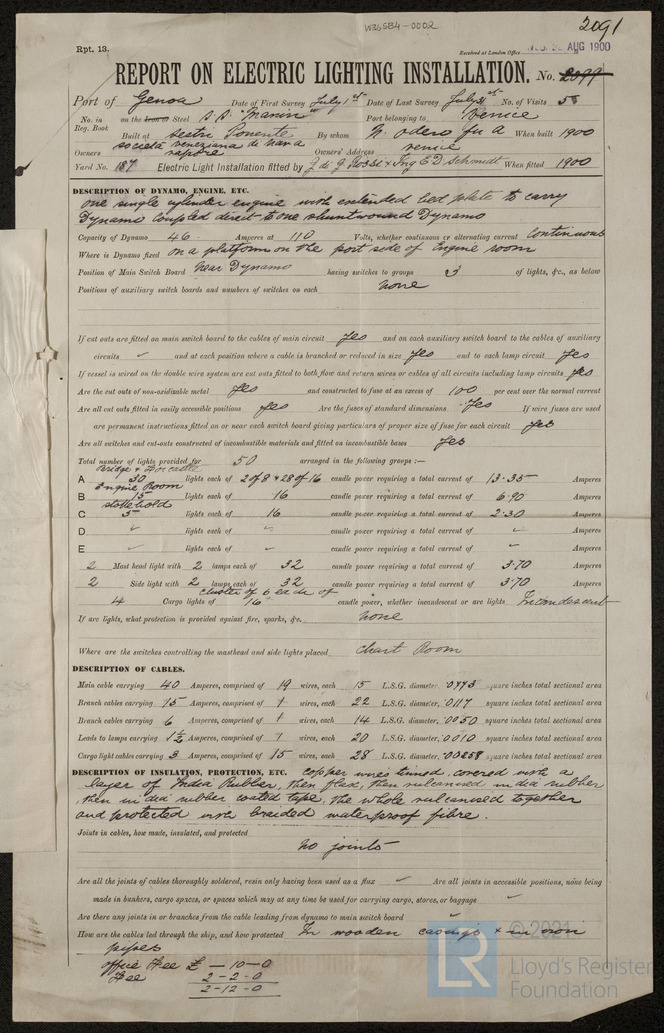 W36584-0002
2091
Rpt. 13.
Received at London Office WED. AUG 1900
REPORT ON ELECTRIC LIGHTING INSTALLATION. No. 2099
Port of Genoa Date of First Survey July 1st Date of Last Survey July 31st No. of Visits 5
No. in Reg. Book on the Iron or Steel S.S. "Manin" Port belonging to Venice
Built at Sestri Ponente By whom N. Odero fu A When built 1900
Owners Societa Veneziana di Nav a vapore Owners' Address Venice
Yard No. 187 Electric Light Installation fitted by & Ing E D Schmidt When fitted 1900
DESCRIPTION OF DYNAMO, ENGINE, ETC.
one single cylinder engine with extended bed plate to carry
Dynamo coupled direct to one shuntwound Dynamo
Capacity of Dynamo 46 Amperes at 110 Volts, whether continuous or alternating current Continuous
Where is Dynamo fixed on a platform on the port side of Engine room
Position of Main Switch Board Near Dynamo having switches to groups 3 of lights, &c., as below
Positions of auxiliary switch boards and numbers of switches on each none
If cut outs are fitted on main switch board to the cables of main circuit Yes and on each auxiliary switch board to the cables of auxiliary
circuits ✓ and at each position where a cable is branched or reduced in size Yes and to each lamp circuit Yes
If vessel is wired on the double wire system are cut outs fitted to both flow and return wires or cables of all circuits including lamp circuits Yes
Are the cut outs of non-oxidizable metal Yes and constructed to fuse at an excess of 100 per cent over the normal current
Are all cut outs fitted in easily accessible positions Yes Are the fuses of standard dimensions Yes If wire fuses are used
are permanent instructions fitted on or near each switch board giving particulars of proper size of fuse for each circuit Yes
Are all switches and cut-outs constructed of incombustible materials and fitted on incombustible bases Yes
Total number of lights provided for 50 arranged in the following groups :—
Bridge & Forcastle
A 30 lights each of 2 of 8 & 28 of 16 candle power requiring a total current of 13.35 Amperes
Engine Room
B 15 lights each of 16 candle power requiring a total current of 6.90 Amperes
stokehold
C 5 lights each of 16 candle power requiring a total current of 2.30 Amperes
D ✓ lights each of ✓ candle power requiring a total current of ✓ Amperes
E ✓ lights each of ✓ candle power requiring a total current of ✓ Amperes
2 Mast head light with 2 lamps each of 32 candle power requiring a total current of 3.70 Amperes
2 Side light with 2 lamps each of 32 candle power requiring a total current of 3.70 Amperes
cluster of 6 each of
4 Cargo lights of 16 candle power, whether incandescent or arc lights Incandescent
If arc lights, what protection is provided against fire, sparks, &c. none
Where are the switches controlling the masthead and side lights placed Chart Room
DESCRIPTION OF CABLES.
Main cable carrying 40 Amperes, comprised of 19 wires, each 15 L.S.G. diameter, .0773 square inches total sectional area
Branch cables carrying 15 Amperes, comprised of 7 wires, each 22 L.S.G. diameter, .0117 square inches total sectional area
Branch cables carrying 6 Amperes, comprised of 1 wires, each 14 L.S.G. diameter, .0050 square inches total sectional area
Leads to lamps carrying 1½ Amperes, comprised of 1 wires, each 20 L.S.G. diameter, .0010 square inches total sectional area
Cargo light cables carrying 3 Amperes, comprised of 15 wires, each 28 L.S.G. diameter, .00258 square inches total sectional area
DESCRIPTION OF INSULATION, PROTECTION, ETC. copper wires tinned, covered with a
layer of India Rubber, then flax, then vulcanised india rubber
then india rubber coated tape, the whole vulcanised together
and protected with braided waterproof fibre.
Joints in cables, how made, insulated, and protected
no joints
Are all the joints of cables thoroughly soldered, resin only having been used as a flux ✓ Are all joints in accessible positions, none being
made in bunkers, cargo spaces, or spaces which may at any time be used for carrying cargo, stores, or baggage ✓
Are there any joints in or branches from the cable leading from dynamo to main switch board ✓
How are the cables led through the ship, and how protected In wooden casings & in iron
pipes
office Fee £ — 10 — 0
Fee 2 — 2 — 0
2 — 12 — 0
LR
© 2021
Lloyd's Register
Foundation